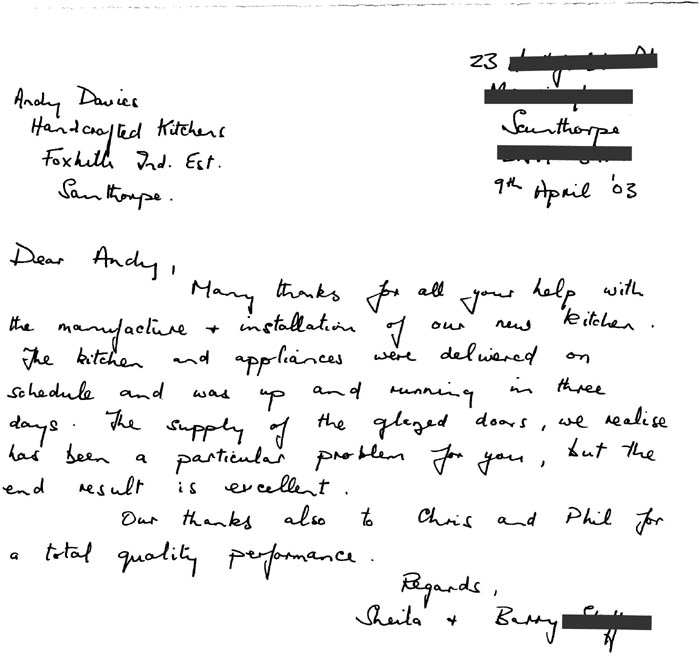 23
Andy Davies
Handcrafted Kitchens
Scunthorpe
Foxhills Ind. Est.
Scunthorpe.
9th April '03
Dear Andy,
Many thanks for all your help with
the manufacture + installation of our new kitchen.
The kitchen and appliances were delivered on
schedule and was up and running in three
days. The supply of the glazed doors, we realise
has been a particular problem for you, but the
end result is excellent.
Our thanks also to Chris and Phil for
a total quality performance.
Regards,
Sheila + Barry